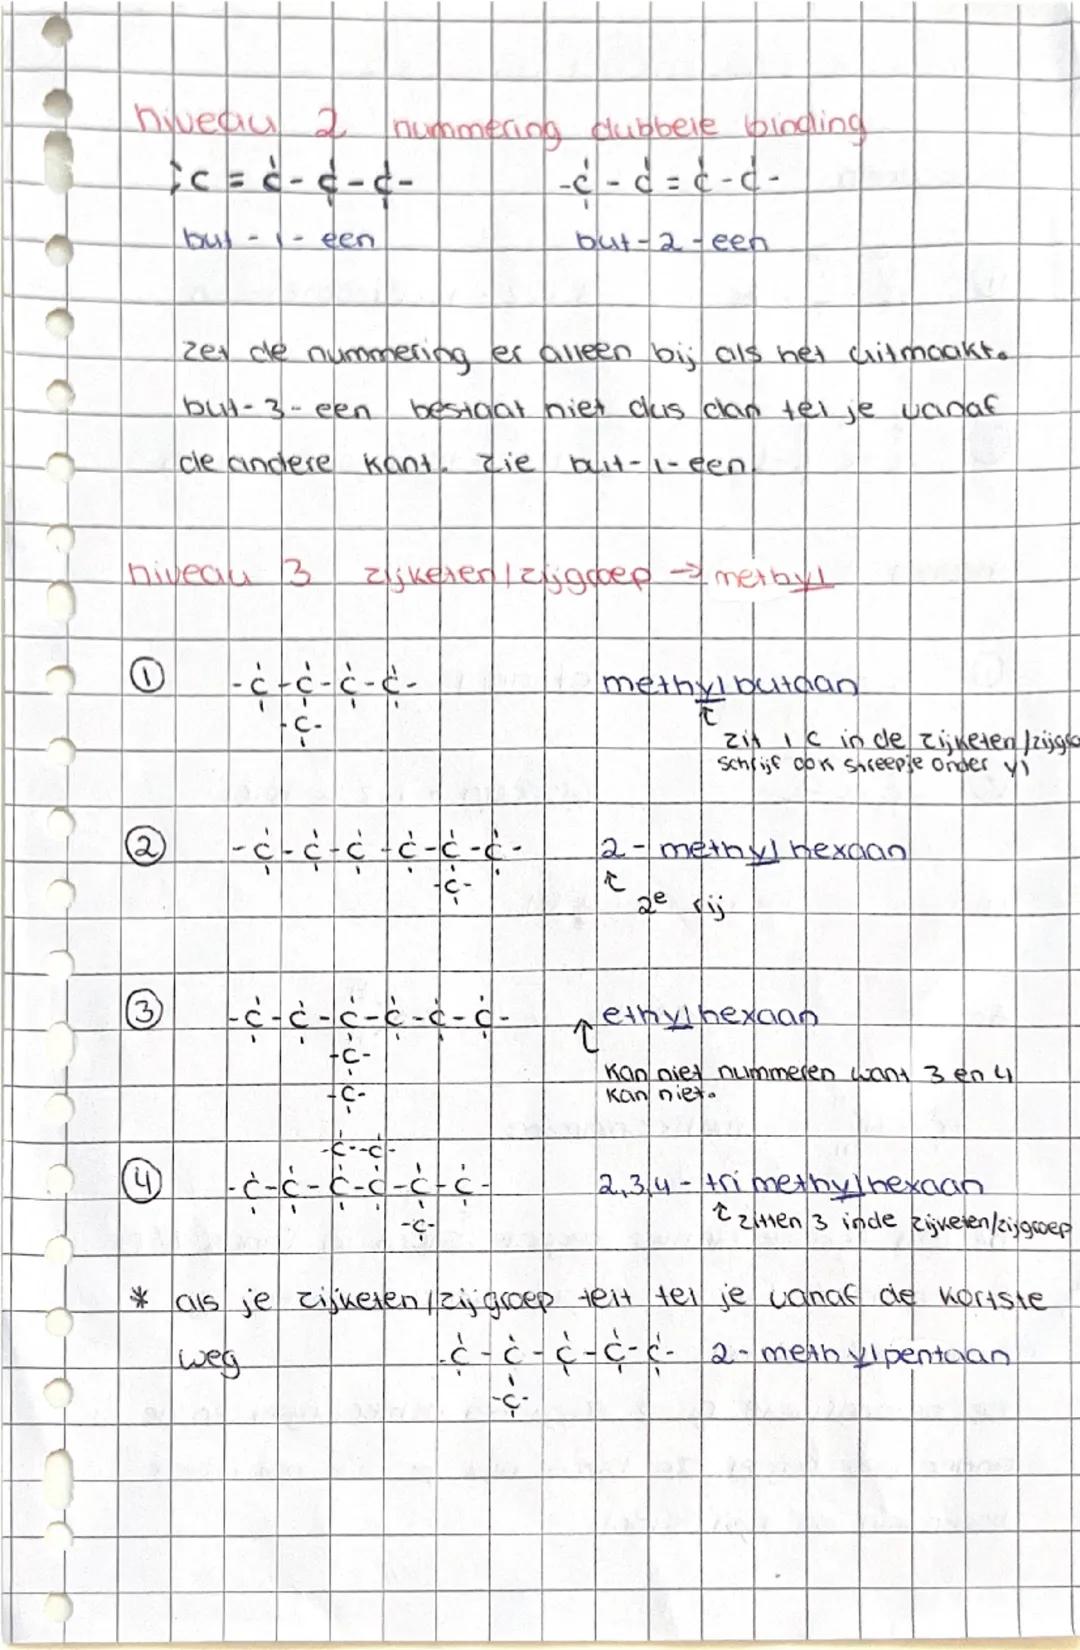 niveau 2 nummering dubbele binding
C = C - C - C -
- C - C = C - C -
but - 1 - een
but - 2 - een
zet de nummering er alleen bij als het uitmaakt.
but-3-een bestaat niet dus dan tel je vanaf
de andere kant. zie but-1-een
niveau 3 zijketen/zijgroep → methyl
① - C - C - C - C - methylbutaan
- C -
↑
zit 1 C in de zijketen/zijgro
schrijf ook streepje onder yl
② - C - C - C - C - C - C - 2 - methylhexaan
- C -
↑
2e rij
③ - C - C - C - C - C - C - ↑ ethylhexaan
- C -
- C -
kan niet nummeren want 3 en 4
kan niet.
- C - - C -
④ - C - C - C - C - C - C - 2,3,4 - trimethylhexaan
- C -
↑ zitten 3 in de zijketen/zijgroep
* als je zijketen/zijgroep telt tel je vanaf de kortste
weg - C - C - C - C - C - 2 - methylpentaan
- C -